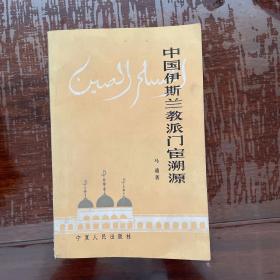 中国伊斯兰教派门宦溯源
马通著
宁夏人民出版社